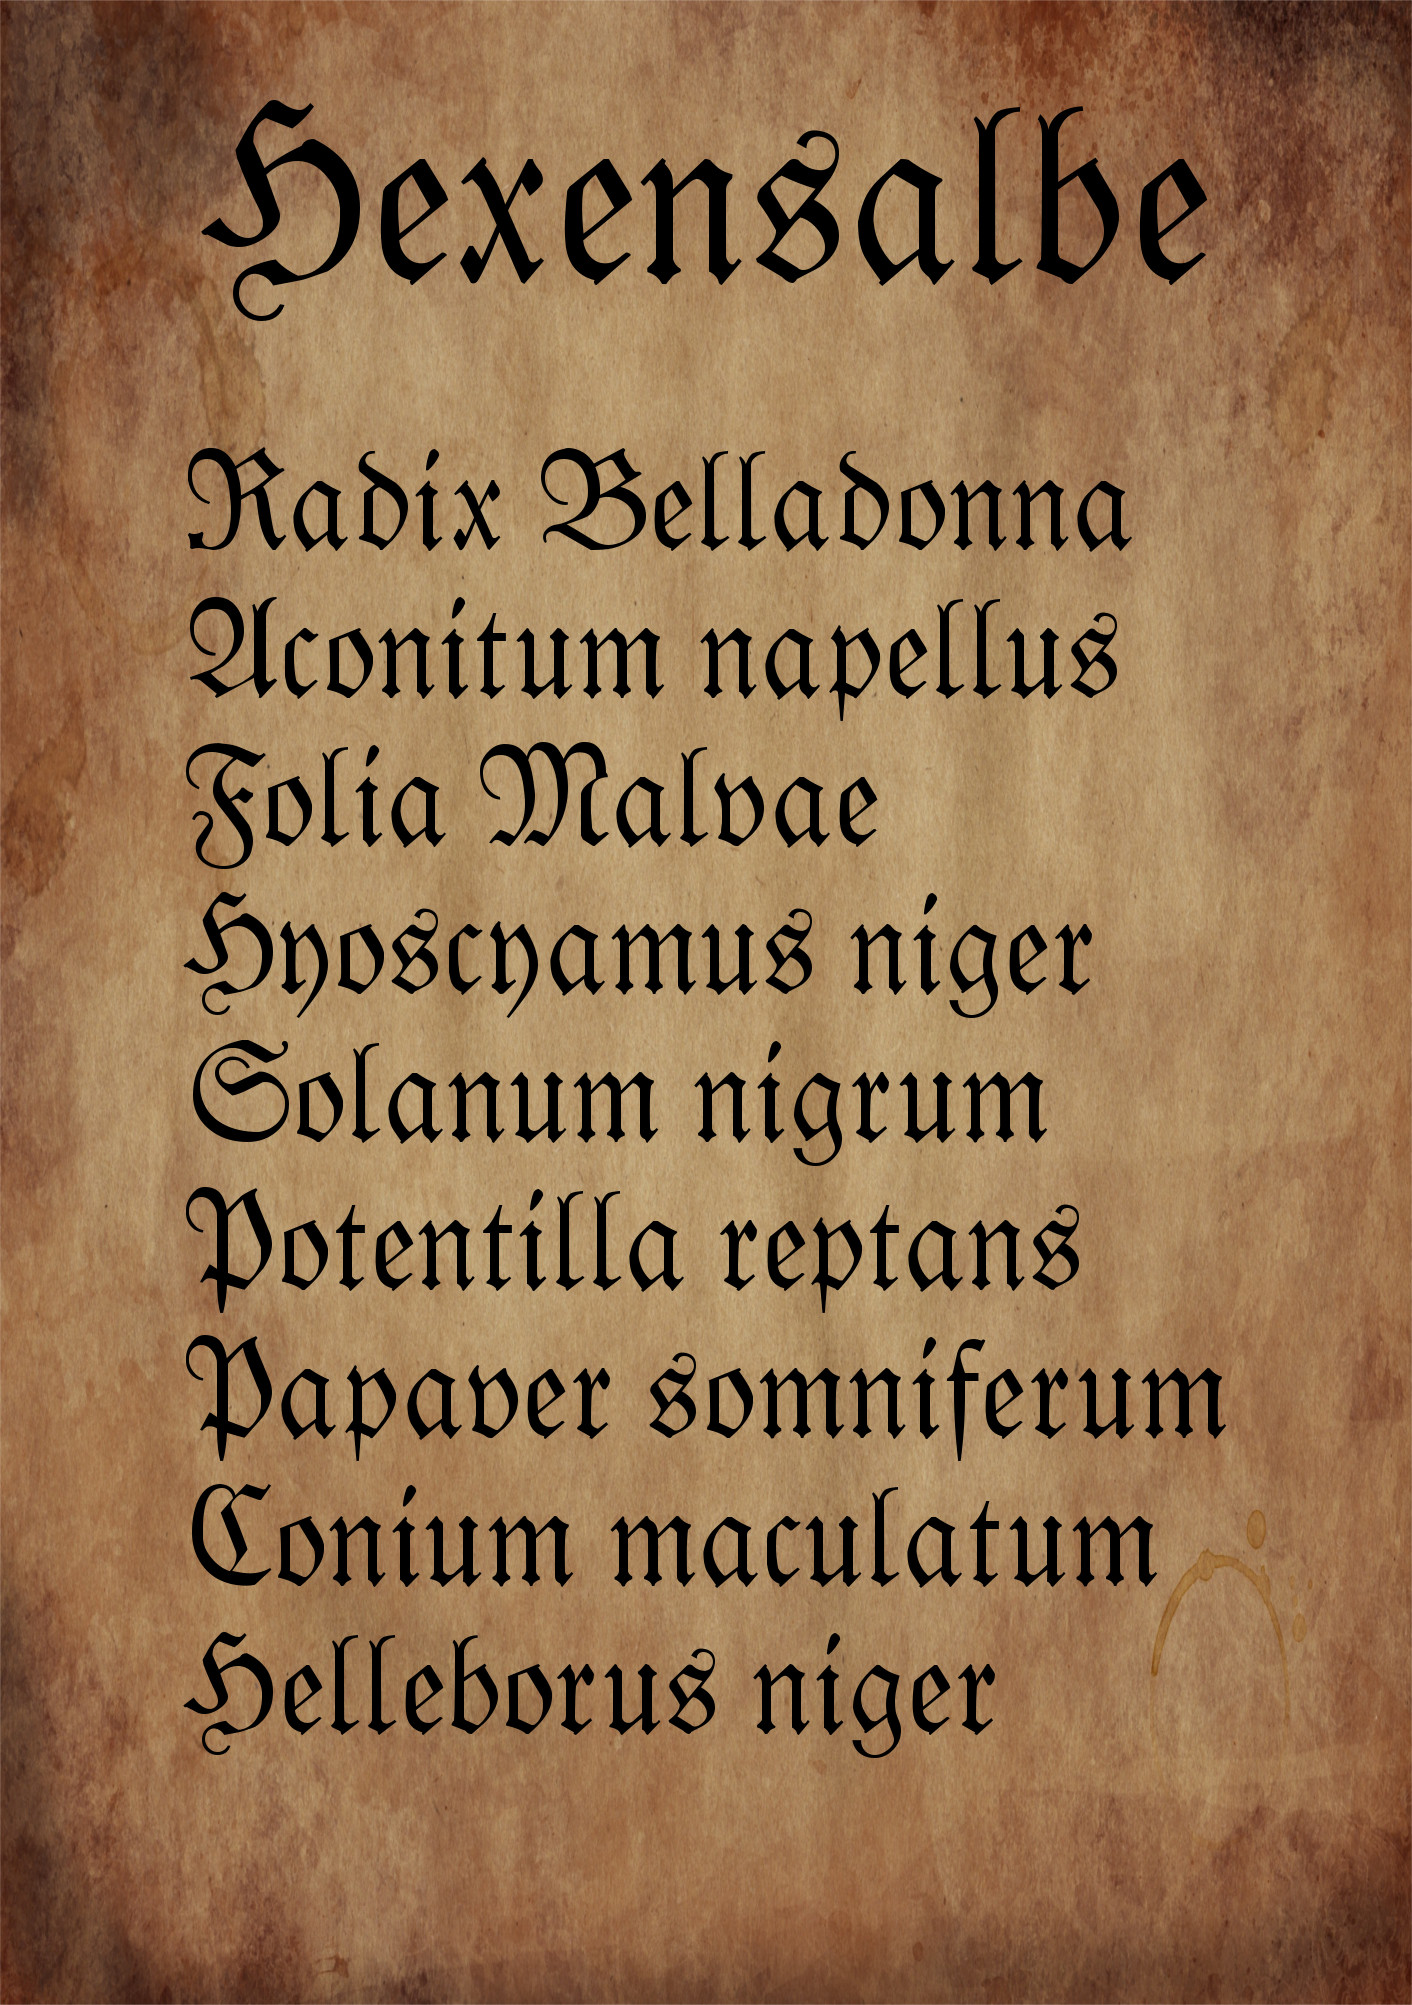 Hexensalbe
Radix Belladonna
Aconitum napellus
Folia Malvae
Hyoscyamus niger
Solanum nigrum
Potentilla reptans
Papaver somniferum
Conium maculatum
Helleborus niger